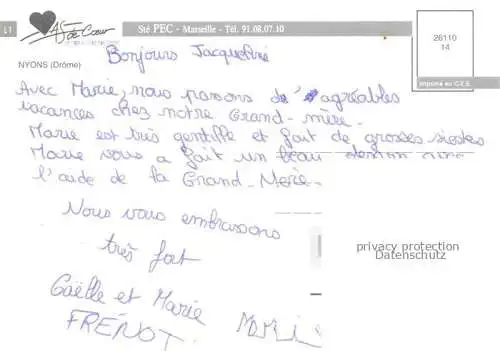 As de Cœur
Sté PEC - Marseille - Tél. 91.08.07.10
26110
14
Bonjours Jacqueline
NYONS (Drôme)
Imprimé au C.E.E.
Avec Marie, nous passons d'agréables
vacances chez notre Grand-mère.
Marie est très gentille et fait de grosses siestes
Marie vous a fait un beau dessin avec
l'aide de la Grand-Mère.
Nous vous embrassons
très fort
privacy protection
Datenschutz
Gaëlle et Marie
FRÉNOT.